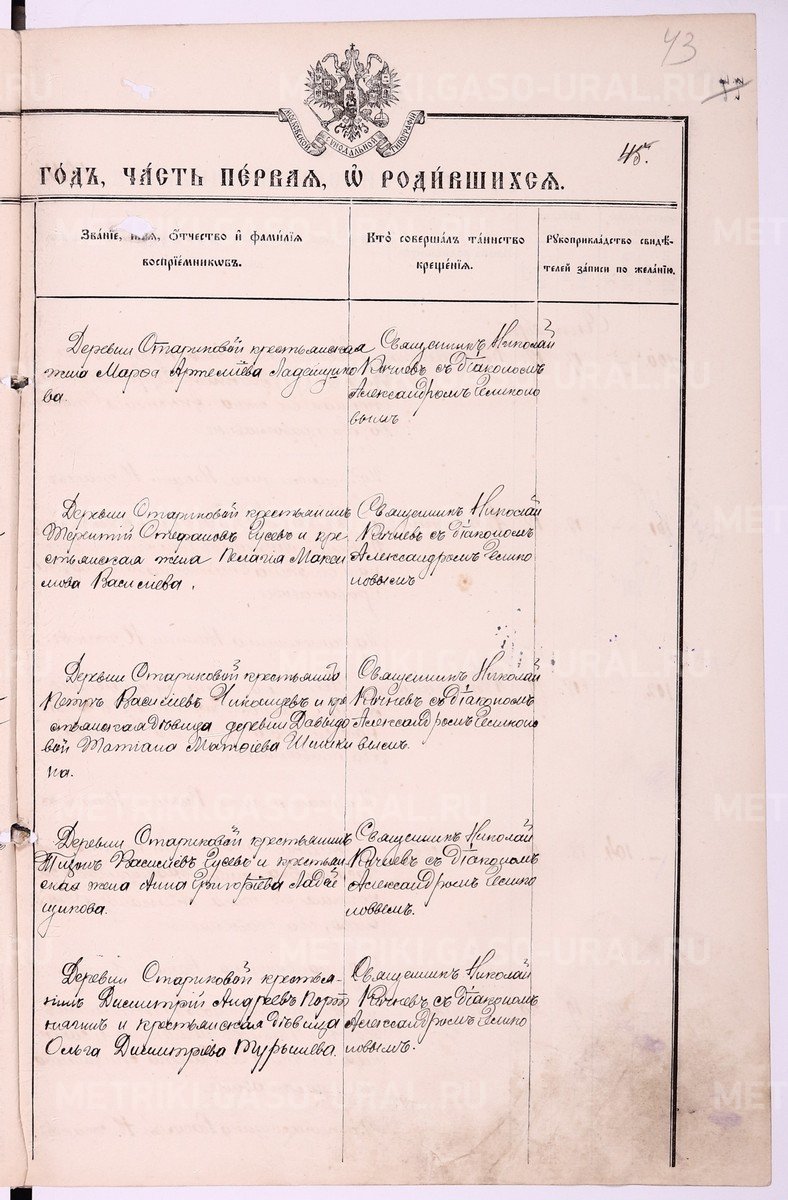 43
45.
МОСКОВСКОЙ СѴНОДАЛЬНОЙ ТИПОГРАФІИ
ГО́ДЪ, ЧА́СТЬ ПЕ́РВАЯ, Ѿ РОДИ́ВШИХСЯ.
Зва́нїе, имя, Ѻ́тчество и҆ фамѝлїя
воспрїе́мниковъ.
Кто̀ соверша́лъ та́инство
креще́нїя.
Рꙋкоприкла́дство свидѣ́-
телей за́писи по жела́нїю.
Деревни Стариковой крестьянская
жена Марѳа Артемїева Ладейщико
ва.
Священникъ Николай
съ Дїакономъ
Александромъ
Деревни Стариковой крестьянинъ
Терентій Стефановъ Гусевъ и кре
стьянская жена Пелагія Макси
мова Василіева.
Священникъ Николай
съ Дїакономъ
Александромъ
Деревни Стариковой крестьянинъ
Петръ Василїевъ и кре
стьянская дѣвица деревни Давыдо
вой Татіана Матѳіева Шишки
на.
Священникъ Николай
съ Дїакономъ
Александромъ
Деревни Стариковой крестьянинъ
Тихонъ Василіевъ Гусевъ и крестьян
ская жена Анна Григорїева Ладей
щикова.
Священникъ Николай
съ Дїакономъ
Александромъ
Деревни Стариковой крестья-
нинъ Димитрій Андреевъ Порт
нягинъ и крестьянская дѣвица
Ольга Димитріева Турышева.
Священникъ Николай
съ Дїакономъ
Александромъ
METRIKI.GASO-URAL.RU